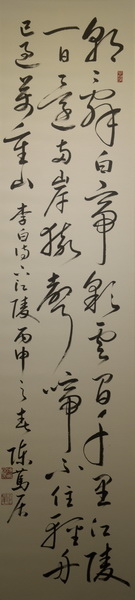 朝辭白帝彩雲間千里江陵
一日還兩岸猿聲啼不住輕舟
已過萬重山 李白诗下江陵 丙申之春 陳